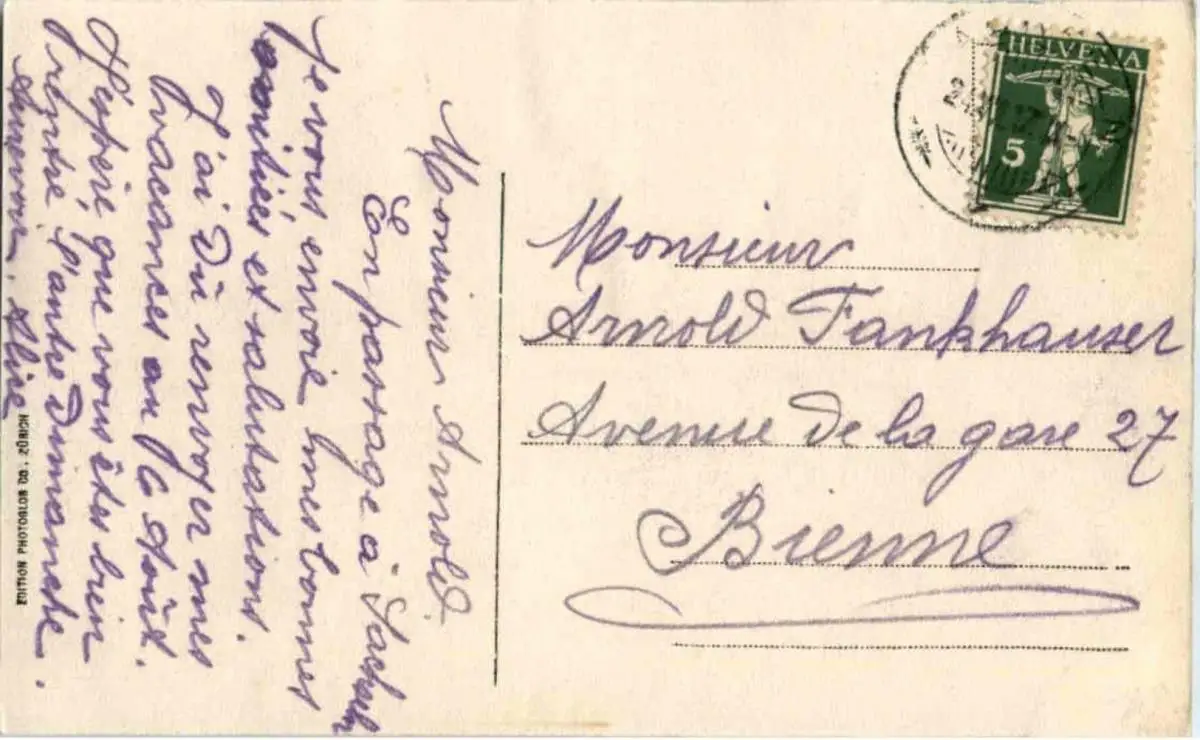 Monsieur Arnold.
En passage à Sachseln
Je vous envoie mes bonnes
amitiés et salutations.
J'ai dû renvoyer mes
vacances au 6 Août.
J'espère que vous êtes bien
rentré l'autre Dimanche.
Aurevoir. Alice
EDITION PHOTOGLOB CO., ZÜRICH
HELVETIA
5
Monsieur
Arnold Fankhauser
Avenue de la gare 27
Bienne